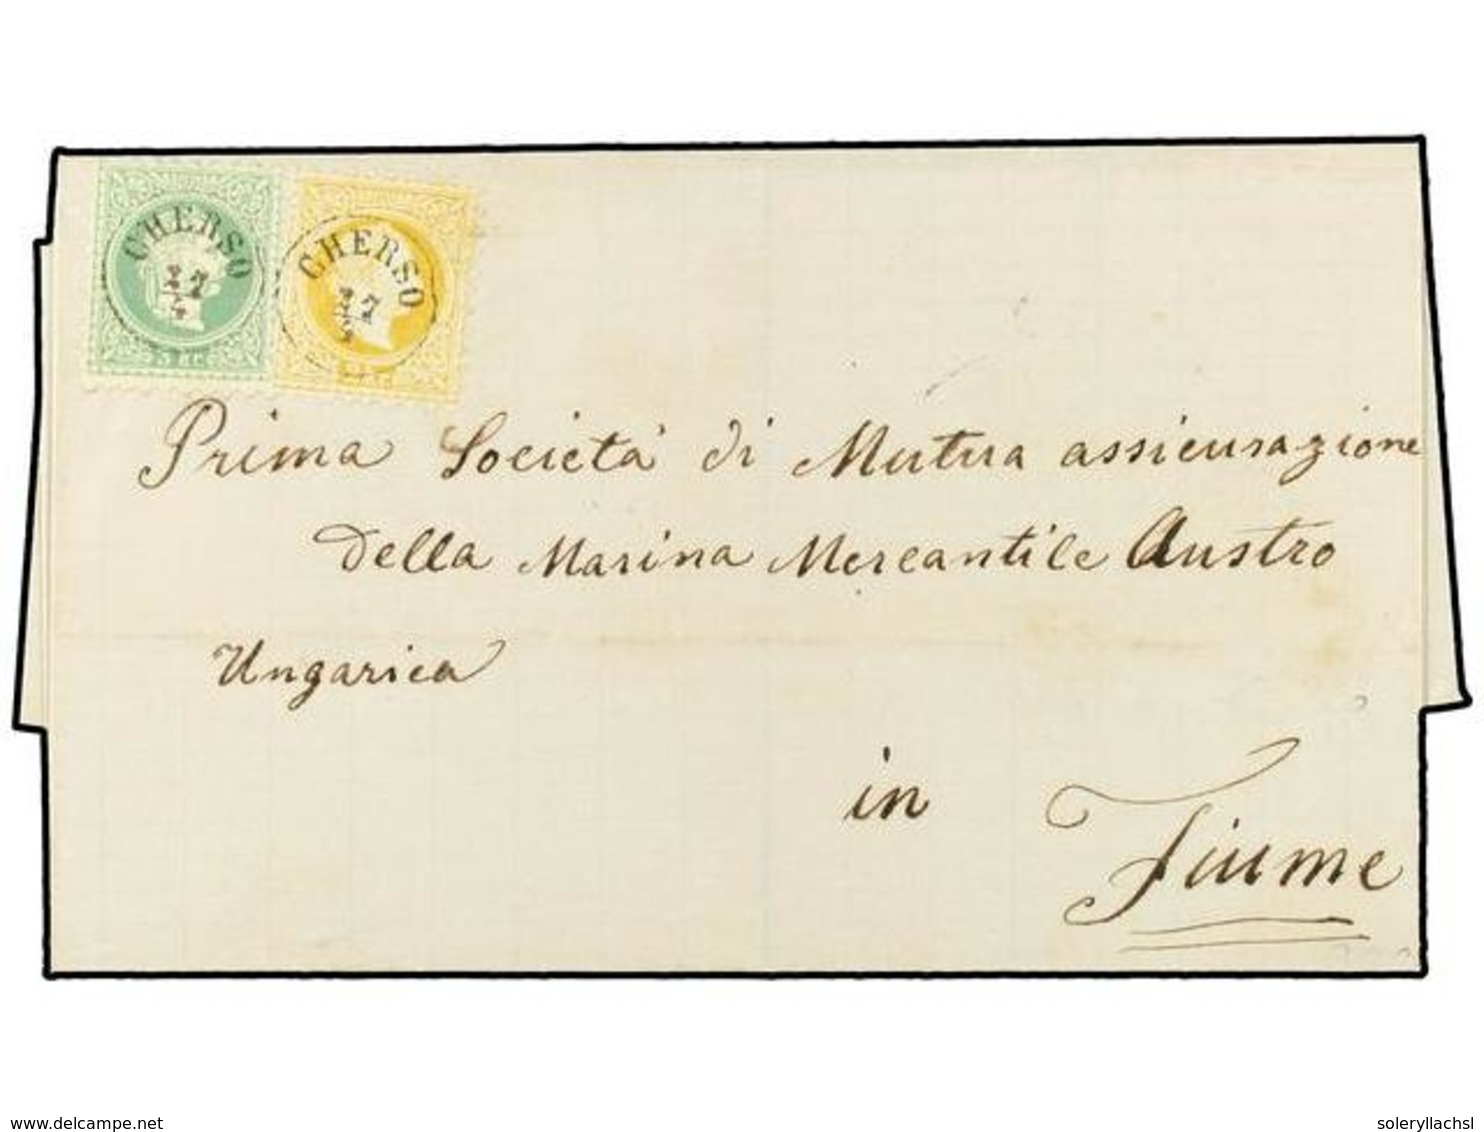 CHERSO
CHERSO
3 KR
Prima Società di Mutua assicurazione
della Marina Mercantile Austro
Ungarica
in
Fiume
delcampe.net
soleryllachsl